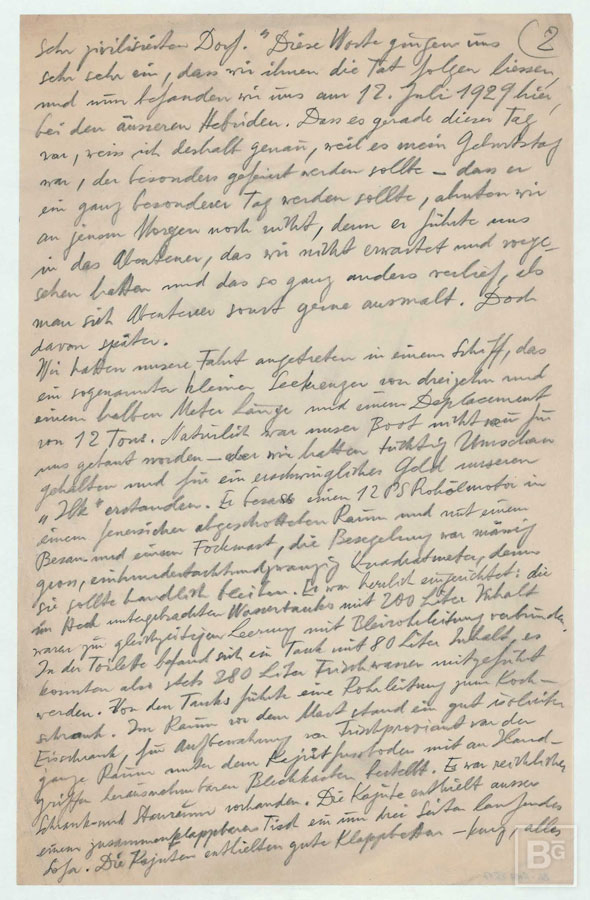 (2
sehr zivilisierten Dorf." Diese Worte gingen uns
sehr sehr ein, dass wir ihnen die Tat folgen liessen,
und nun befanden wir uns am 12. Juli 1929 hier,
bei den äusseren Hebriden. Dass es gerade dieser Tag
war, weiss ich deshalb genau, weil es mein Geburtstag
war, der besonders gefeiert werden sollte – dass er
ein ganz besonderer Tag werden sollte, ahnten wir
an jenem Morgen noch nicht, denn er führte uns
in das Abenteuer, das wir nicht erwartet und vorge-
sehen hatten und das so ganz anders verlief, als
man sich Abenteuer sonst gerne ausmalt. Doch
davon später.
Wir hatten unsere Fahrt angetreten in einem Schiff, das
ein sogenannter kleiner Seekreuzer von dreizehn und
einem halben Meter Länge und einem Deplacement
von 12 Tons. Natürlich war unser Boot nicht für
uns gebaut worden – aber wir hatten tüchtig Umschau
gehalten und für ein erschwingliches Geld unseren
"Ilk" erstanden. Er besass einen 12 PS Rohölmotor in
einem feuersicher abgeschotteten Raum und mit einem
Besan und einem Fockmast, die Besegelung war mässig
gross, einhundertachtundzwanzig Quadratmeter, denn
sie sollte handlich bleiben. Er war herrlich eingerichtet: die
im Heck untergebrachten Wassertanks mit 200 Liter Inhalt
waren zur gleichzeitigen Leerung mit Bleirohrleitung verbunden.
In der Toilette befand sich ein Tank mit 80 Liter Inhalt, es
konnten also stets 280 Liter Frischwasser mitgeführt
werden. Von den Tanks führte eine Rohrleitung zum Koch-
schrank. Im Raum vor dem Mast stand ein gut isolierter
Eisschrank, für Aufbewahrung von Frischproviant war der
ganze Raum unter dem Kajütfussboden mit an Hand-
griffen herausnehmbaren Blechkästen bestellt. Es war reichlicher
Schrank- und Stauraum vorhanden. Die Kajüte enthielt ausser
einem zusammenklappbaren Tisch ein um drei Seiten laufendes
Sofa. Die Kajüten enthielten gute Klappbetten – kurz, alles
BG